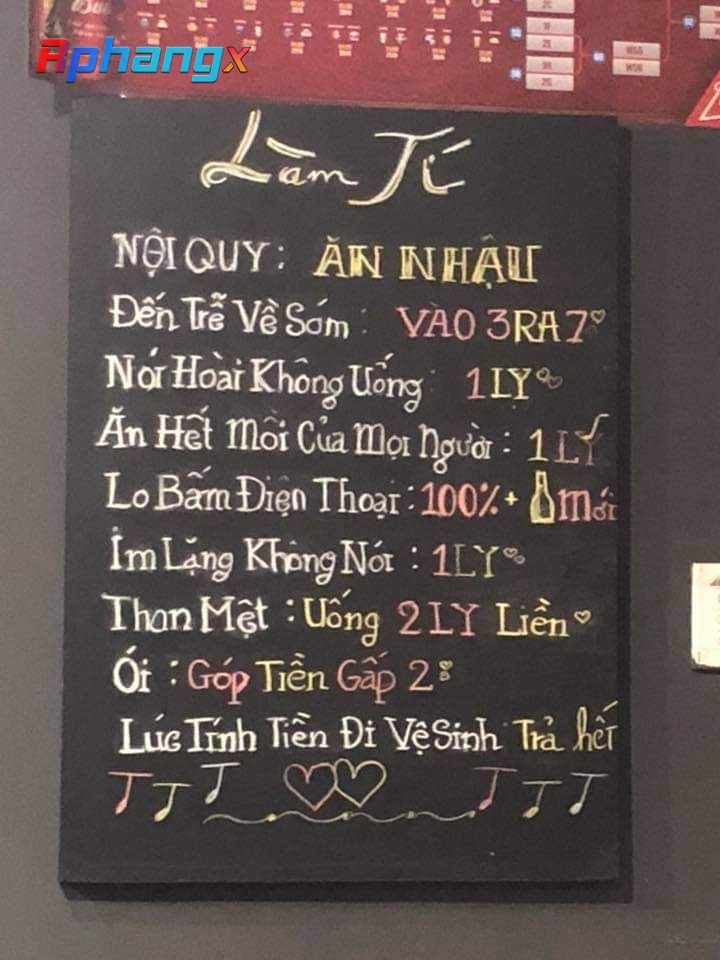 Rphangx
Làm Tí
NỘI QUY: ĂN NHẬU
Đến Trễ Về Sớm: VÀO 3 RA 7
Nói Hoài Không Uống: 1 LY
Ăn Hết Mồi Của Mọi Người: 1 LY
Lo Bấm Điện Thoại: 100% + mới
Im Lặng Không Nói: 1 LY
Than Mệt: Uống 2 LY Liền
Ói: Góp Tiền Gấp 2
Lúc Tính Tiền Đi Vệ Sinh Trả hết